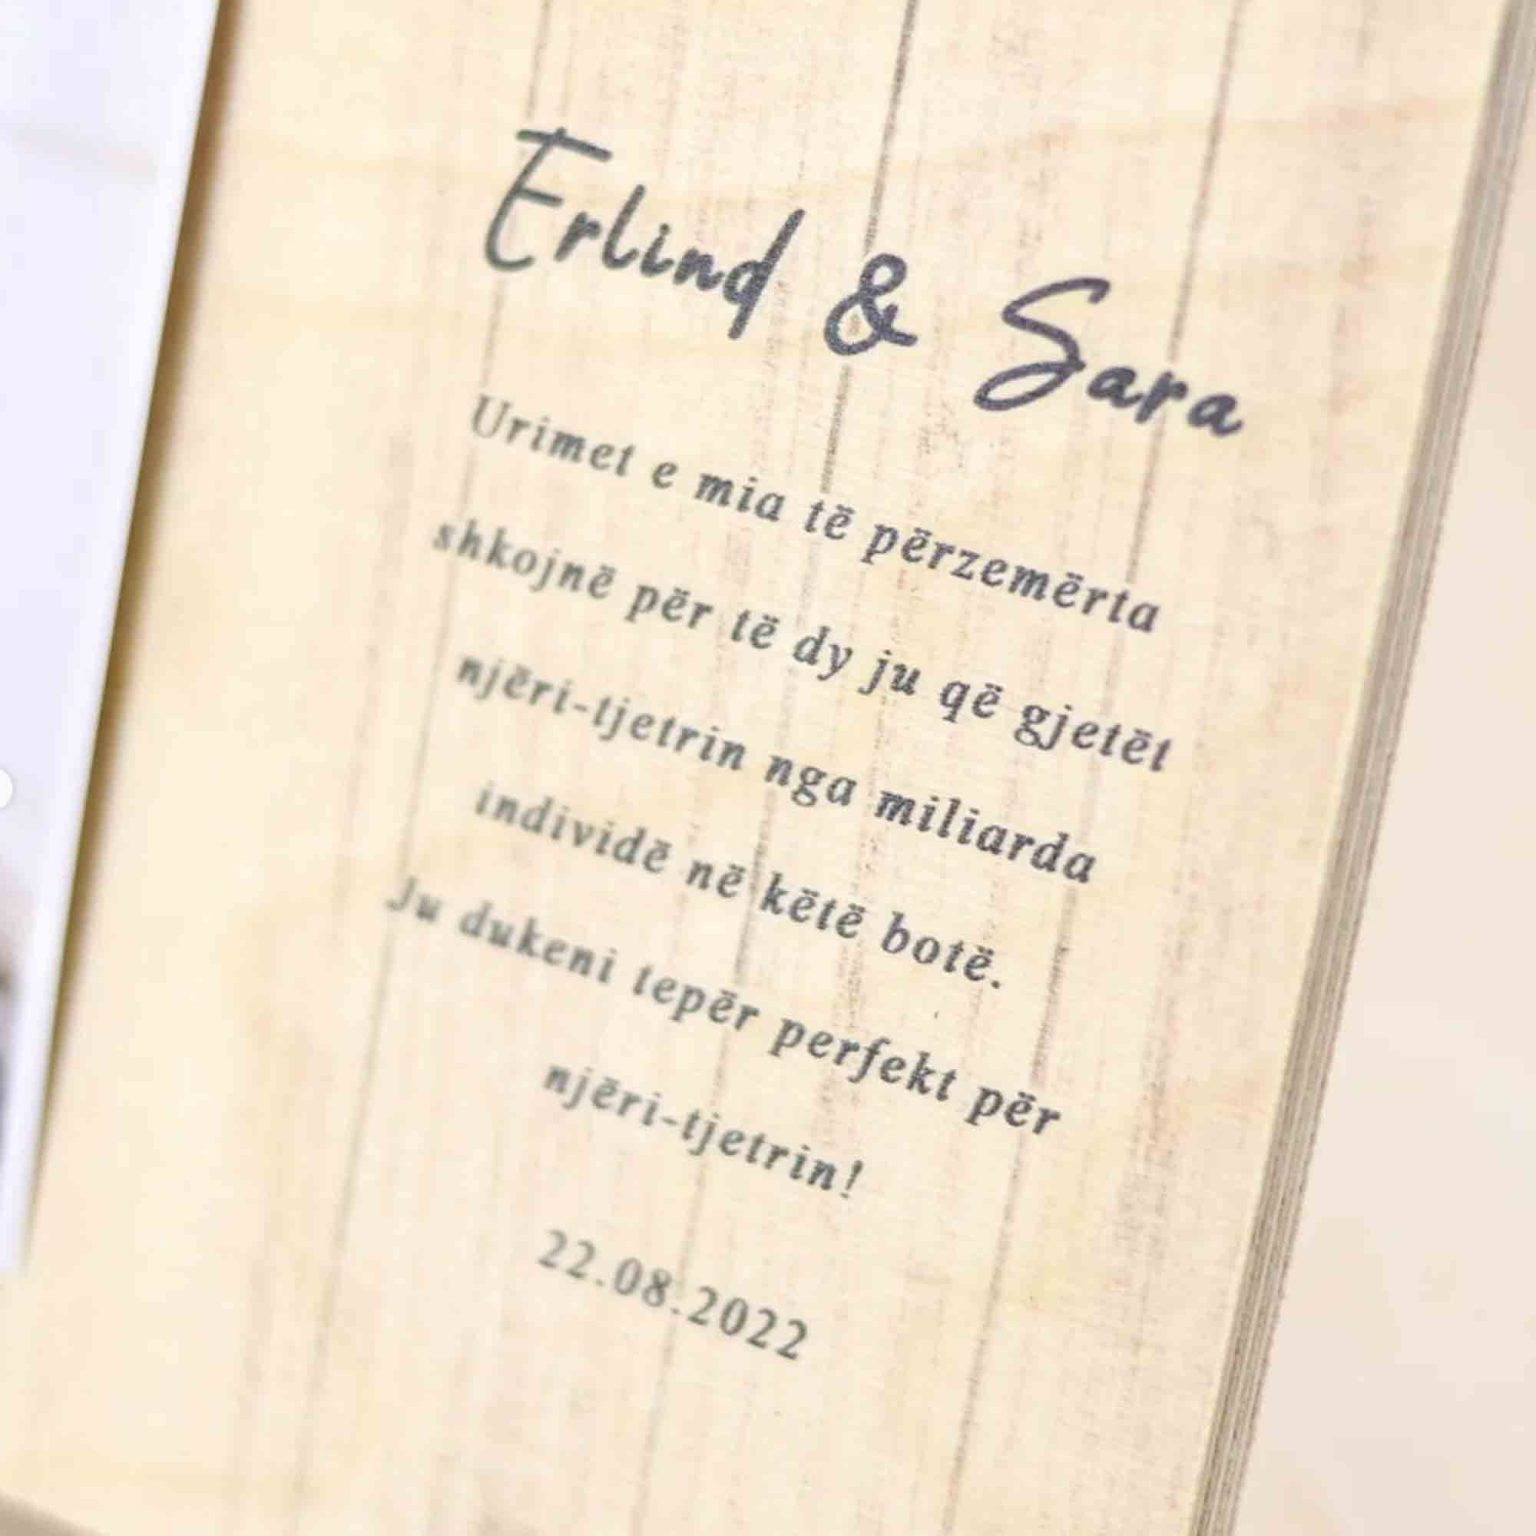 Erlind & Sara
Urimet e mia të përzemërta
shkojnë për të dy ju që gjetët
njëri-tjetrin nga miliarda
individë në këtë botë.
Ju dukeni tepër perfekt për
njëri-tjetrin!
22.08.2022